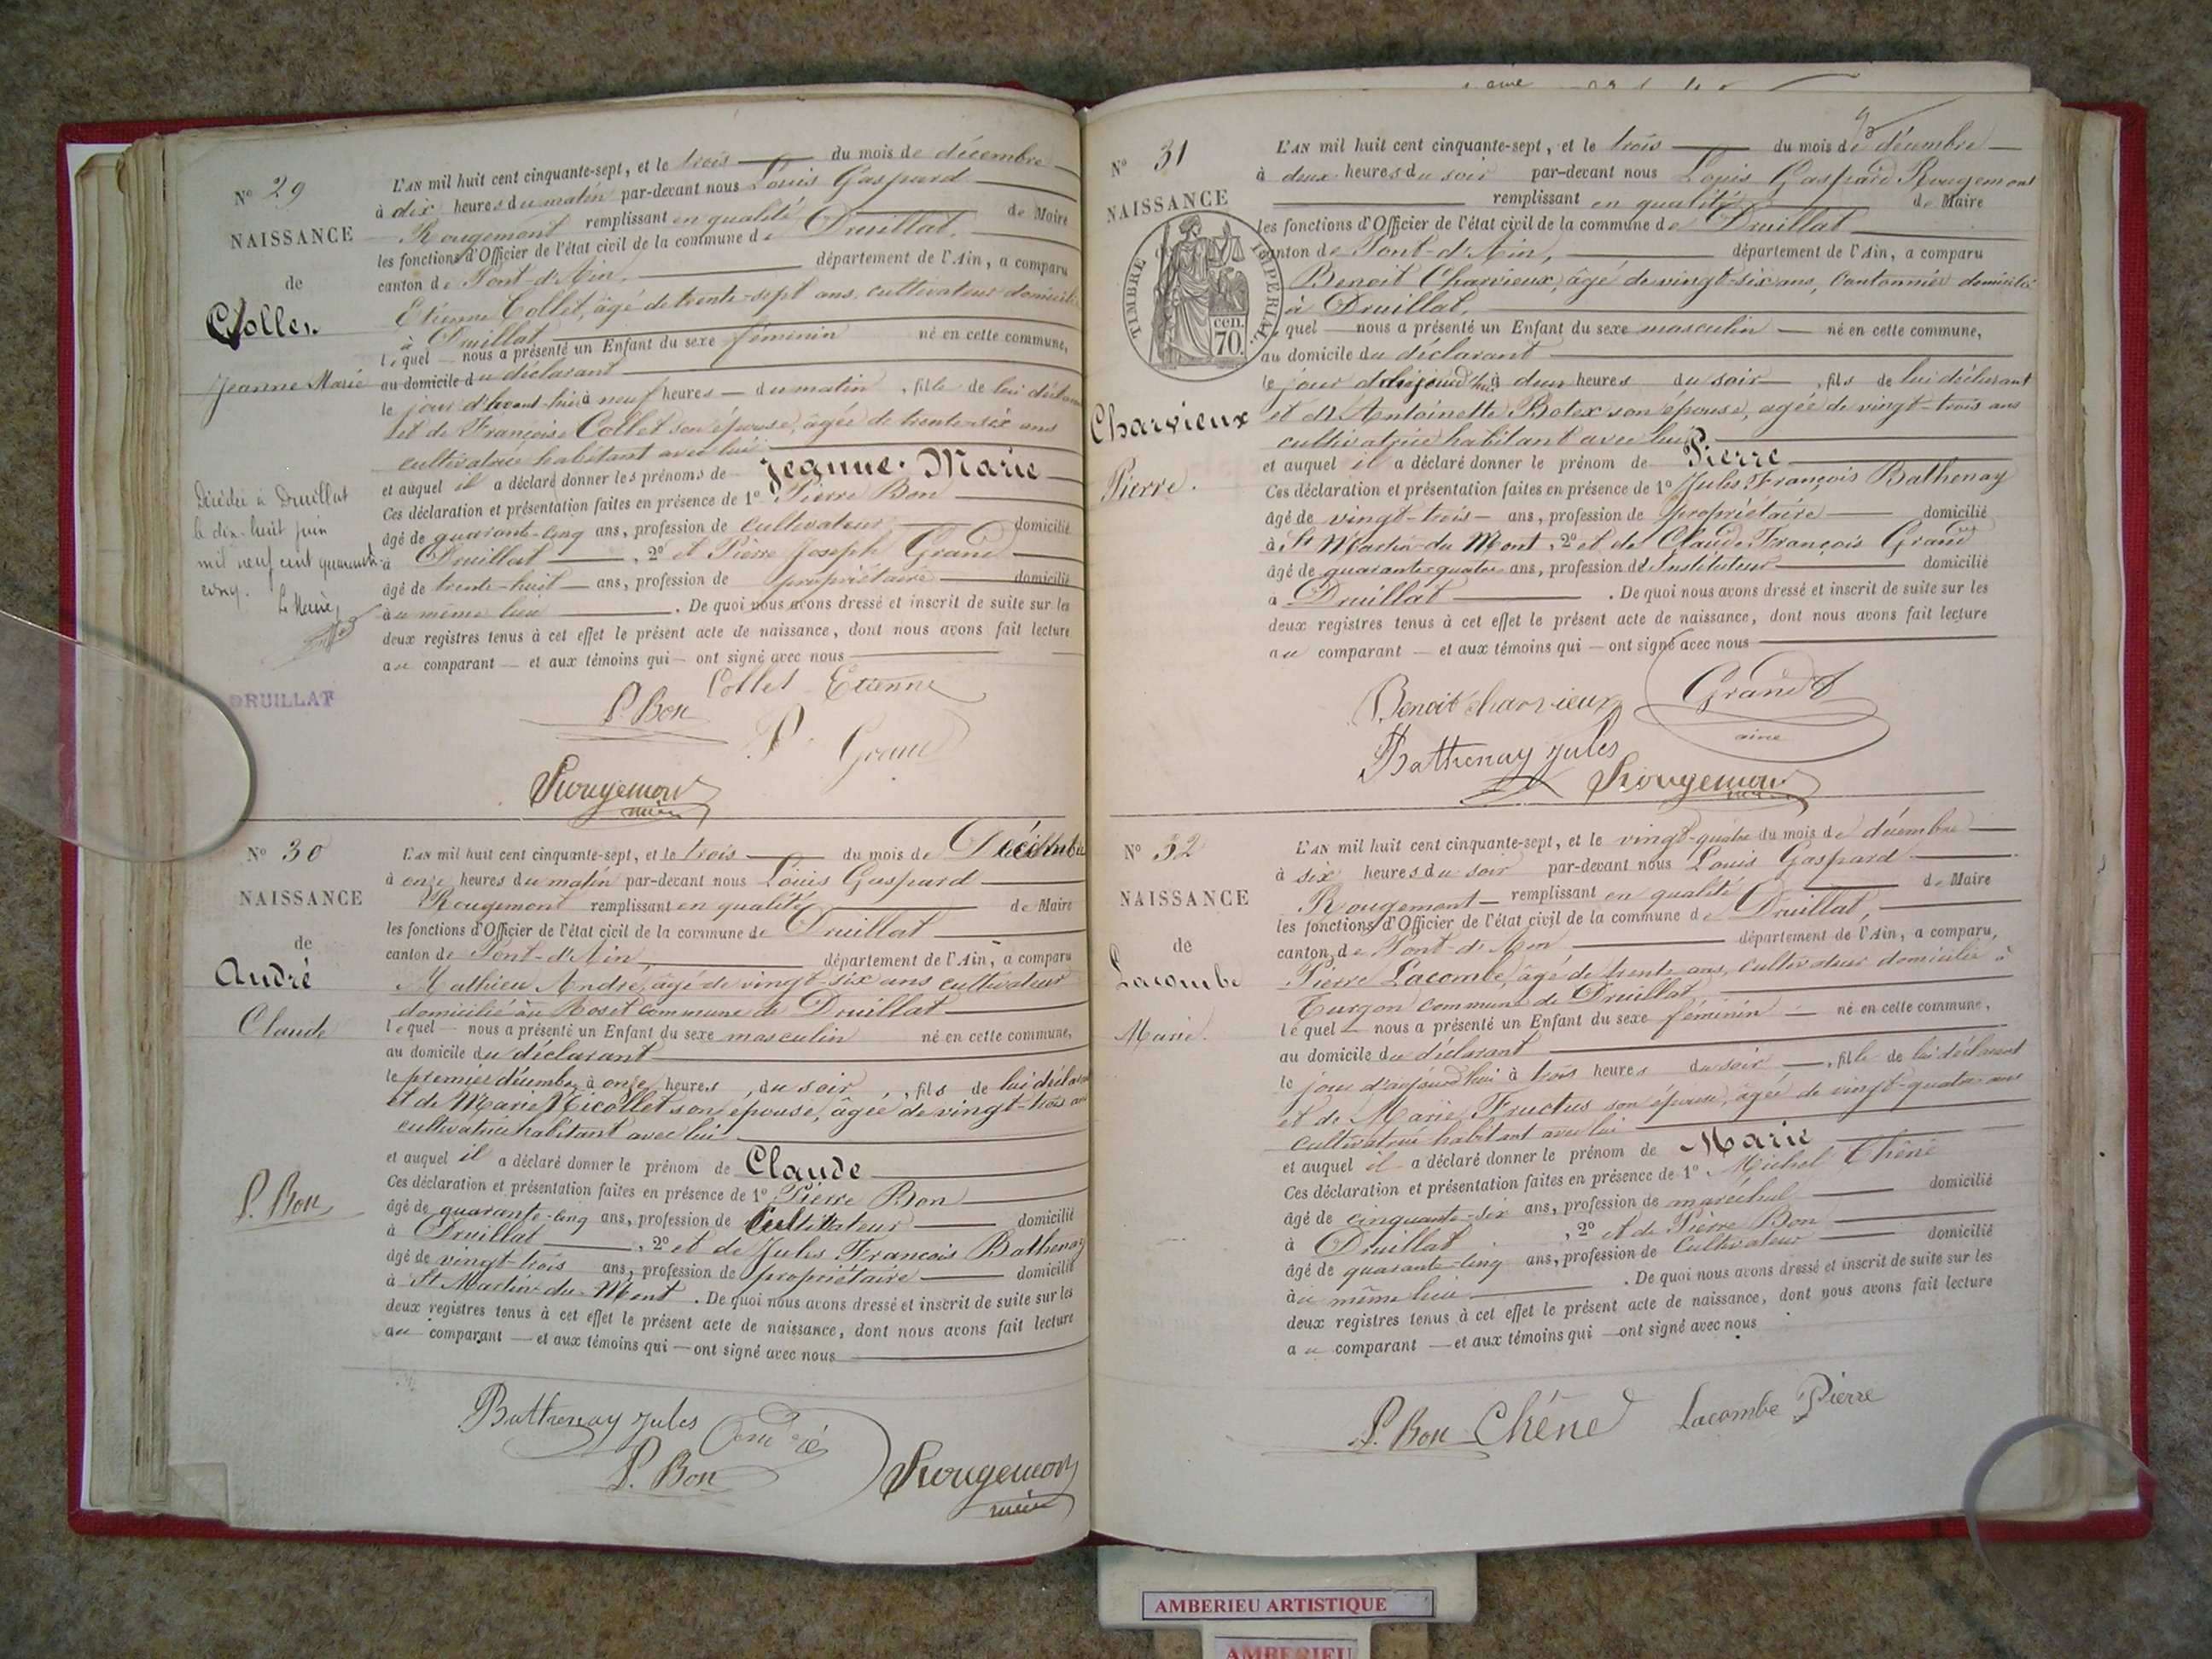 N° 29
NAISSANCE
de
Collet
Jeanne Marie
Décédée à Druillat
le dix-huit juin
mil neuf cent quarante
cinq.
Le Maire,
DRUILLAT
L'AN mil huit cent cinquante-sept, et le trois du mois de décembre
à dix heures du matin par-devant nous Louis Gaspard
Rougemont remplissant en qualité de Maire
les fonctions d'Officier de l'état civil de la commune de Druillat,
canton de Pont-d'Ain, département de l'Ain, a comparu
Etienne Collet, âgé de trente-sept ans, cultivateur domicilié
à Druillat
lequel nous a présenté un Enfant du sexe féminin né en cette commune,
au domicile du déclarant
le jour d'avant-hier à neuf heures du matin, fille de lui déclarant
et de Françoise Collet son épouse, âgée de trente-six ans
cultivatrice habitant avec lui
et auquel il a déclaré donner les prénoms de Jeanne-Marie
Ces déclaration et présentation faites en présence de 1° Pierre Bon
âgé de quarante-cinq ans, profession de cultivateur domicilié
à Druillat, 2° et Pierre Joseph Grand
âgé de trente-huit ans, profession de propriétaire domicilié
au même lieu. De quoi nous avons dressé et inscrit de suite sur les
deux registres tenus à cet effet le présent acte de naissance, dont nous avons fait lecture
au comparant et aux témoins qui ont signé avec nous
Collet Etienne
P. Bon
P. Grand
Rougemont
maire
N° 30
NAISSANCE
de
André
Claude
P. Bon
L'AN mil huit cent cinquante-sept, et le trois du mois de Décembre
à onze heures du matin par-devant nous Louis Gaspard
Rougemont remplissant en qualité de Maire
les fonctions d'Officier de l'état civil de la commune de Druillat
canton de Pont-d'Ain, département de l'Ain, a comparu
Mathieu André, âgé de vingt-six ans cultivateur
domicilié au Roset commune de Druillat
lequel nous a présenté un Enfant du sexe masculin né en cette commune,
au domicile du déclarant
le premier décembre à onze heures du soir, fils de lui déclarant
et de Marie Nicollet son épouse, âgée de vingt-trois ans
cultivatrice habitant avec lui
et auquel il a déclaré donner le prénom de Claude
Ces déclaration et présentation faites en présence de 1° Pierre Bon
âgé de quarante-cinq ans, profession de Cultivateur domicilié
à Druillat, 2° et de Jules François Bathenay
âgé de vingt-trois ans, profession de propriétaire domicilié
à St Martin-du-Mont. De quoi nous avons dressé et inscrit de suite sur les
deux registres tenus à cet effet le présent acte de naissance, dont nous avons fait lecture
au comparant et aux témoins qui ont signé avec nous
Bathenay Jules André
P. Bon
Rougemont
maire
N° 31
NAISSANCE
TIMBRE IMPÉRIAL
cen.
70.
Charvieux
Pierre.
L'AN mil huit cent cinquante-sept, et le trois du mois de décembre
à deux heures du soir par-devant nous Louis Gaspard Rougemont
remplissant en qualité de Maire
les fonctions d'Officier de l'état civil de la commune de Druillat
canton de Pont-d'Ain, département de l'Ain, a comparu
Benoit Charvieux, âgé de vingt-six ans, Cantonnier domicilié
à Druillat,
lequel nous a présenté un Enfant du sexe masculin né en cette commune,
au domicile du déclarant
le jour d'aujourd'hui à deux heures du soir, fils de lui déclarant
et de Antoinette Botex son épouse, âgée de vingt-trois ans
cultivatrice habitant avec lui
et auquel il a déclaré donner le prénom de Pierre
Ces déclaration et présentation faites en présence de 1° Jules François Bathenay
âgé de vingt-trois ans, profession de propriétaire domicilié
à St Martin-du Mont, 2° et de Claude François Grand
âgé de quarante-quatre ans, profession de Instituteur domicilié
à Druillat. De quoi nous avons dressé et inscrit de suite sur les
deux registres tenus à cet effet le présent acte de naissance, dont nous avons fait lecture
au comparant et aux témoins qui ont signé avec nous
Benoit Charvieux Grand
ainé
Bathenay Jules
Rougemont
maire
N° 32
NAISSANCE
de
Lacombe
Marie.
L'AN mil huit cent cinquante-sept, et le vingt-quatre du mois de décembre
à six heures du soir par-devant nous Louis Gaspard
Rougemont remplissant en qualité de Maire
les fonctions d'Officier de l'état civil de la commune de Druillat,
canton de Pont-d'Ain, département de l'Ain, a comparu,
Pierre Lacombe, âgé de trente ans, cultivateur domicilié à
Turgon commune de Druillat
lequel nous a présenté un Enfant du sexe féminin né en cette commune,
au domicile du déclarant
le jour d'aujourd'hui à trois heures du soir, fille de lui déclarant
et de Marie Fructus son épouse, âgée de vingt-quatre ans
cultivatrice habitant avec lui
et auquel il a déclaré donner le prénom de Marie
Ces déclaration et présentation faites en présence de 1° Michel Chêne
âgé de cinquante-six ans, profession de maréchal domicilié
à Druillat, 2° et de Pierre Bon
âgé de quarante-cinq ans, profession de Cultivateur domicilié
au même lieu. De quoi nous avons dressé et inscrit de suite sur les
deux registres tenus à cet effet le présent acte de naissance, dont nous avons fait lecture
au comparant et aux témoins qui ont signé avec nous
P. Bon Chêne Lacombe Pierre
AMBERIEU ARTISTIQUE
AMBERIEU